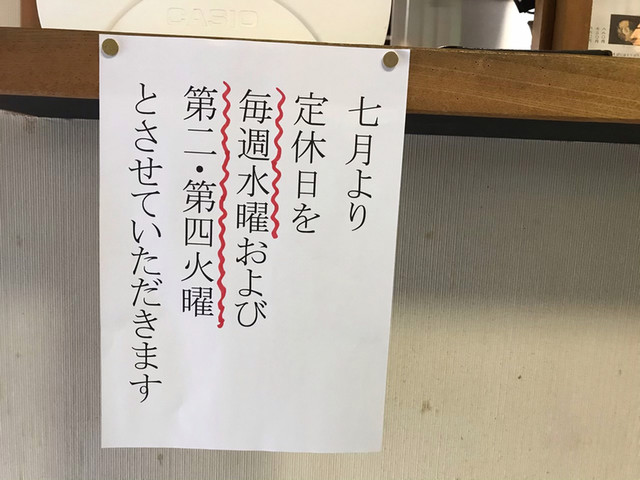 CASIO
七月より
定休日を
毎週水曜および
第二・第四火曜
とさせていただきます